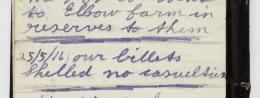 to Elbow farm in
reserves to them
25/5/16 our billets
shelled no casualties